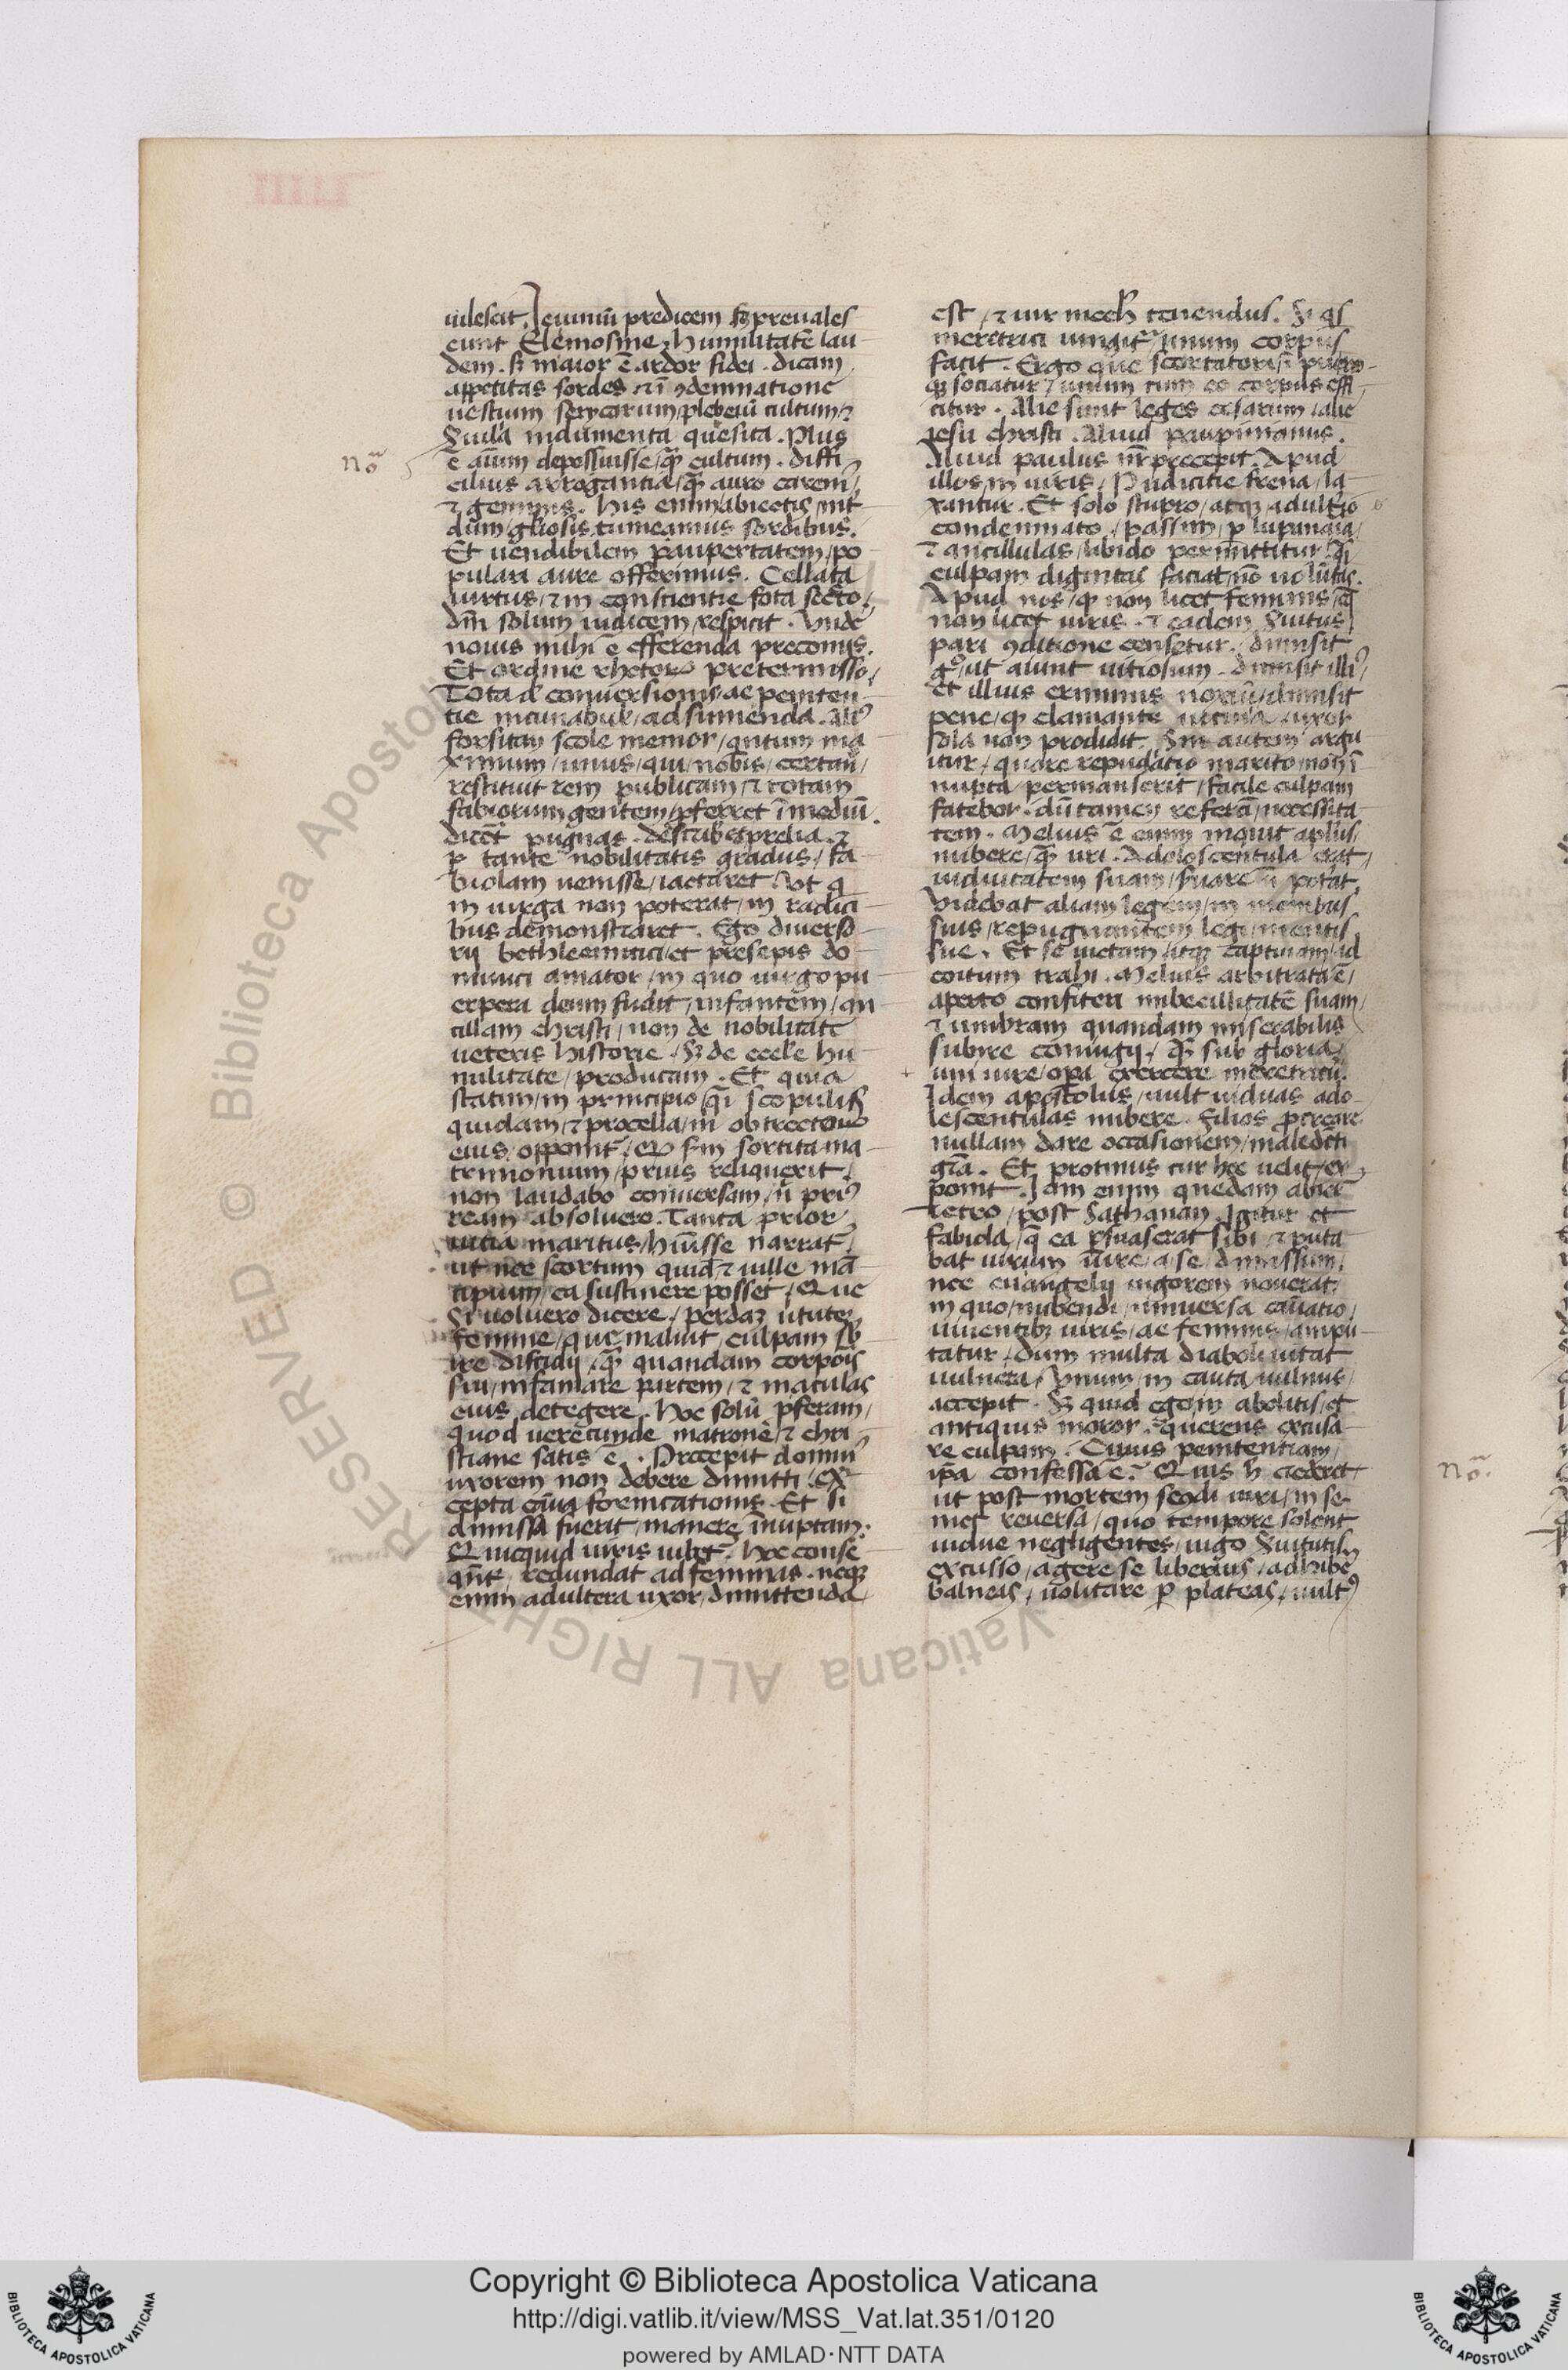 uilescit. Ieiuniū predicem sꝫ preuales
cunt Elemosine. humilitatē lau
dem. sꝫ maior ē ardor fidei. dicam
appetitas sordes. ⁊ ī ꝯdemnatione
uestium sericarum/plebeiū cultum/⁊
Suila indumenta quesita. Plus
nōa
ē aīum deposuisse/qͣꝫ cultum. diffi
cilius arrogantia/qͣꝫ auro carem⁹/
⁊ gemmis. his enim abiectis/int
dum/gliosis tumeamus sordibus.
Et uendibilem paupertatem/po
pulari aure offerimus. Cellata
uirtus/⁊ in conscientie fota secto/
dīn solum iudicem/respicit. Vnde
nouis mihi ē efferenda preconiis.
Et ordine rhetorꝝ pretermisso/
Tota d' conuersionis/ac peniten
tie incunabul'/adsumenda. Ali⁹
forsitan scole memor/qntum ma
ximum/unus/qui/nobis/certan/
restituit rem publicam/⁊ totam
fabiorum gentem/pferret ī mediū.
dicet pugnas. describet prelia. ⁊
ꝑ tante nobilitatis gradus/fa
biolam uenisse/iactaret. Vt qͩ
in uirga non poterat/in radici
bus demonstraret. Ego diuerso
rij bethleemitici/et presepis do
minici amator/in quo uirgo pu
erpera deum fudit/infantem/an
cillam christi/non de nobilitate
ueteris historie. Sꝫ de eccl'e hu
militate/producam. Et quia
statim/in principio/qͣi scopulus
quidam/⁊ procella/m̄ obtrectatoꝝ
eius/opponit᷑/ꝙ scdm sortita ma
trimonium/prius reliquerit/
non laudabo conuersam/nī pri⁹
ream absoluero. Tanta prior
uitia maritus/hūisse narrat᷑
ut nec scortum quidē ⁊ uille mā
cipium/ea sustinere posset/Que
Si uoluero dicere/perdaꝫ ūtuteꝫ
femine/que maluit culpam sb
ire discidij/qͣꝫ quandam corpois
sui/infamare partem/⁊ maculas
eius detegere. hoc solū pferam/
quod uerecunde matrone/⁊ chri
stiane satis ē. Precepit domin⁹
uxorem non debere dimitti/ex
cepta cūa fornicationis. Et si
dimissa fuerit/manere īnuptam.
Quicquid uiris iubet᷑. hoc conse
qn̄t redundat ad feminas. neqꝫ
enim adultera uxor/dimittenda
est/⁊ uir mech᷑ tenendus. Si qs
meretrici iungit᷑/unum corpus
facit. Ergo que scortatori īpuro
qꝫ sociatur/⁊ unum cum eo corpus effi
citur. Alie sunt leges cesarum/alie
iesu christi. Aliud paupinianus.
Aliud paulus nr̄ precepit. Apud
illos/in uiris/Pudicitie frena/la
xantur. Et solo stupro/atqꝫ adulterio
condemnato/passim/ꝑ lupanaria/
⁊ ancillulas/libido permittitur. Qͣi
culpam dignitas faciat/nō uolūtas.
Apud nos/ꝙ non licet feminis/eque
non licet uiris. ⁊ eadem Suitus
pari ꝯditione censetur. dimisit
gͦ/ut aiunt uitiosum. dimisit illi⁹
et illius criminis noxiū/dimisit
pene/ꝙ clamante uicinia/uxor
sola non prodidit. Sin autem argu
itur/quare repudiato marito/non ī
nupta permanserit/facile culpam
fatebor. dū tamen referā/necessita
tem. Melius ē enim inquit apl'us/
nubere/qͣꝫ uri. Adoloscentula erat/
uiduitatem suam/seruare ñ potat.
Videbat aliam legem/in membris
suis/repugnantem legi/mentis
sue. Et se uictam/atqꝫ captiuam/ad
coitum trahi. Melius arbitrata ē/
aperto confiteri imbecillitatē suam/
⁊ umbram quandam miserabilis
subire coniugij/qͣꝫ sub gloria
uniuire/opa exercere meretricū.
Idem apostolus/uult uiduas ado
lescentulas nubere. filios procreare
nullam dare occasionem/maledicti
grā. Et protinus cur hec uelit/ex
ponit. Iam enim quedam abier
retro/post Sathanan. Igitur et
fabiola/qͣ ea psuaserat sibi/⁊ puta
bat uirum iure/a se/dimissum/
nec euangelij uigorem nouerat
in quo/nubendi/uniuersa cauatio/
uiuentibꝫ uiris/ac feminis/ampu
tatur/dum multa diaboli uitat
uulnera/Vnum/in cauta uulnus/
accepit. Sꝫ quid ego/in abolitis/et
antiquis moror. querens excusa
re culpam. Cuius penitentiam/
ip̄a confessa ē. Quis h̄ crederet
ut post mortem secdi uiri/in se
met reuersa/quo tempore solent
uidue negligentes/iugo Suitutis/
excusso/agere se liberius/adhibē
balneas/uolitare ꝑ plateas/uult⁹
nōa.
Copyright © Biblioteca Apostolica Vaticana
http://digi.vatlib.it/view/MSS_Vat.lat.351/0120
powered by AMLAD·NTT DATA